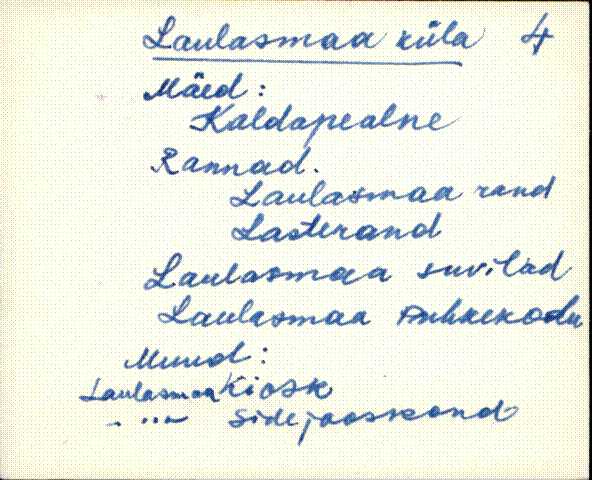 Laulasmaa küla 4
Mäed:
Kaldapealne
Rannad.
Laulasmaa rand
Lasterand
Laulasmaa suvilad
Laulasmaa Puhkekodu
Muud:
Laulasmaa Kiosk
- " - Sidejaoskond